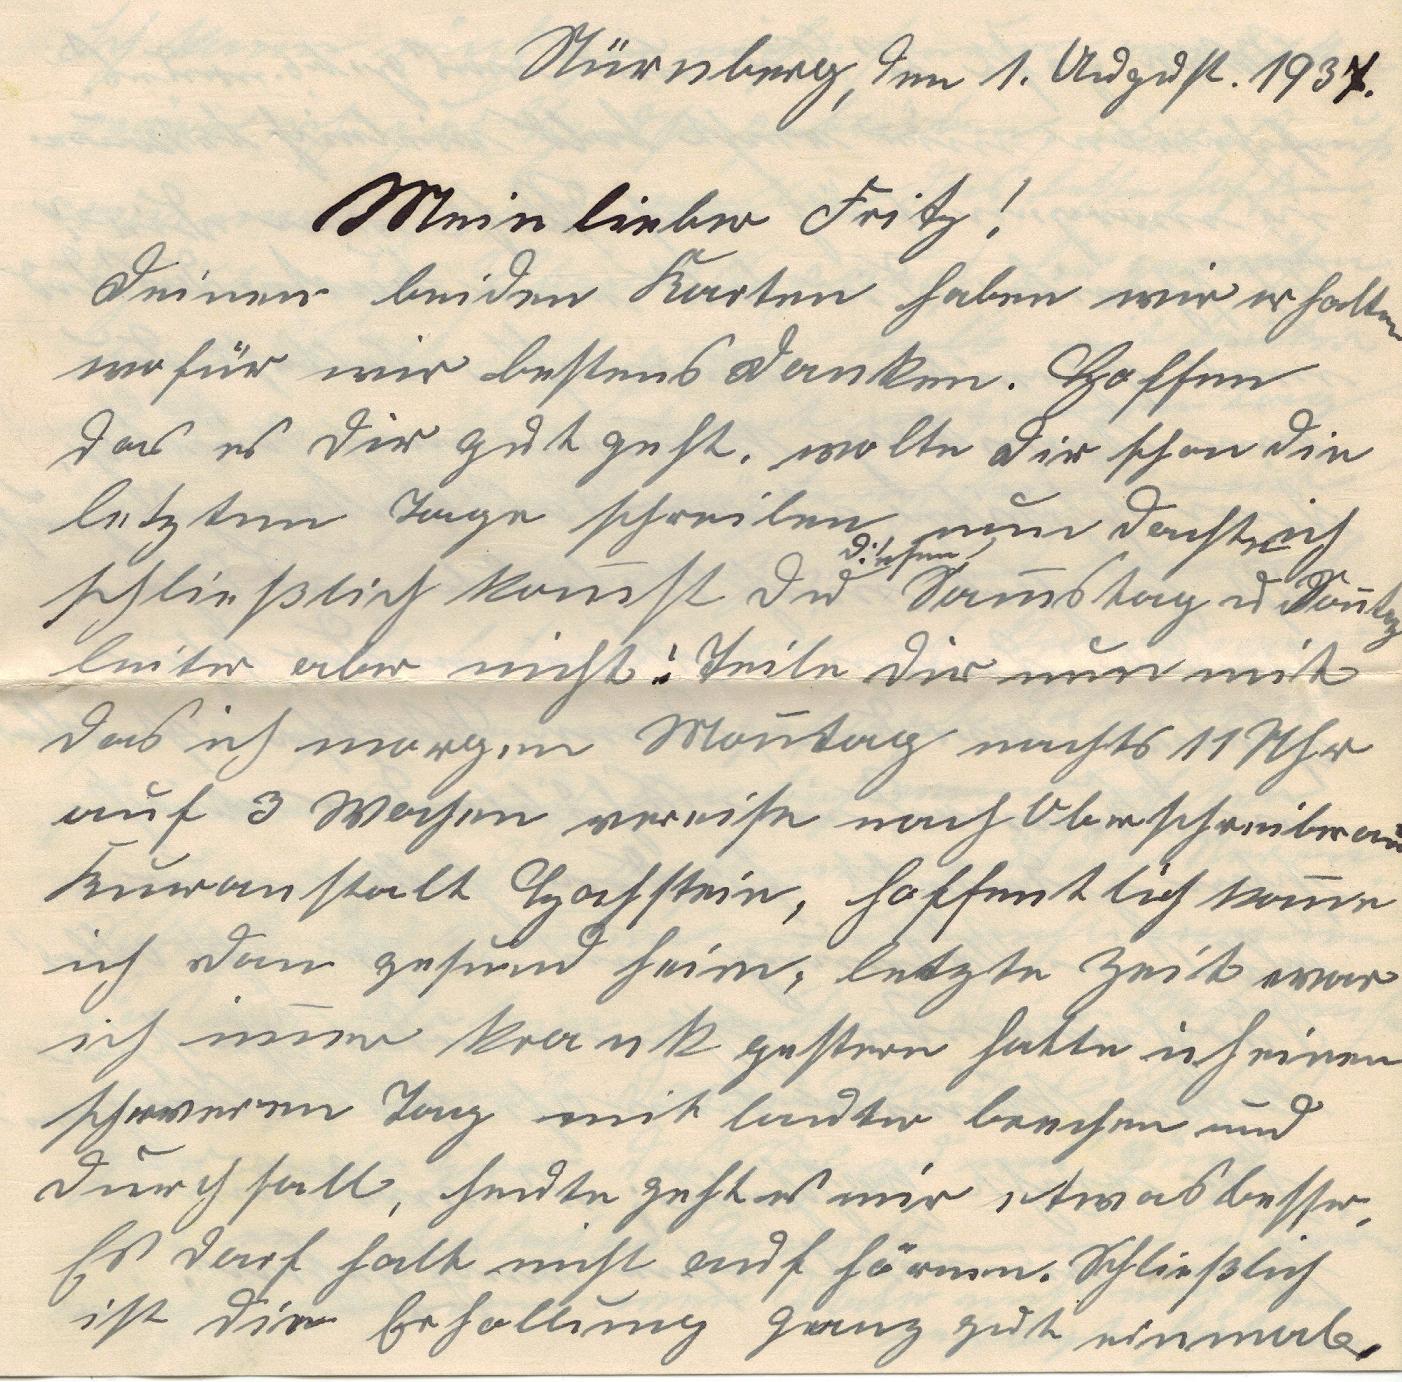 Nürnberg, den 1. August. 1937.
Mein lieber Fritz!
Deinen beiden Karten haben wir erhalten
wofür wir bestens danken. Hoffen
das es dir gut geht. wolte dir schon die
letzten Tage schreiben, nun dachte ich
schließlich kom̄st du diesen Sam̄stag u Son̄tag
leiter aber nicht! Teile dir nun mit
das ich morgen Mon̄tag nachts 11 Uhr
auf 3 Wochen vereise nach Oberschreiberau
Kuranstalt Hochstein, hoffentlich kom̄e
ich dan gesund heim, letzte Zeit war
ich im̄er krank gestern hatte ich einen
schweren Tag mit lauter brechen und
durchfall, heute geht es mir etwas besser,
Es darf halt nicht auf hören. Schließlich
ist die Erhollung ganz gut einmal,